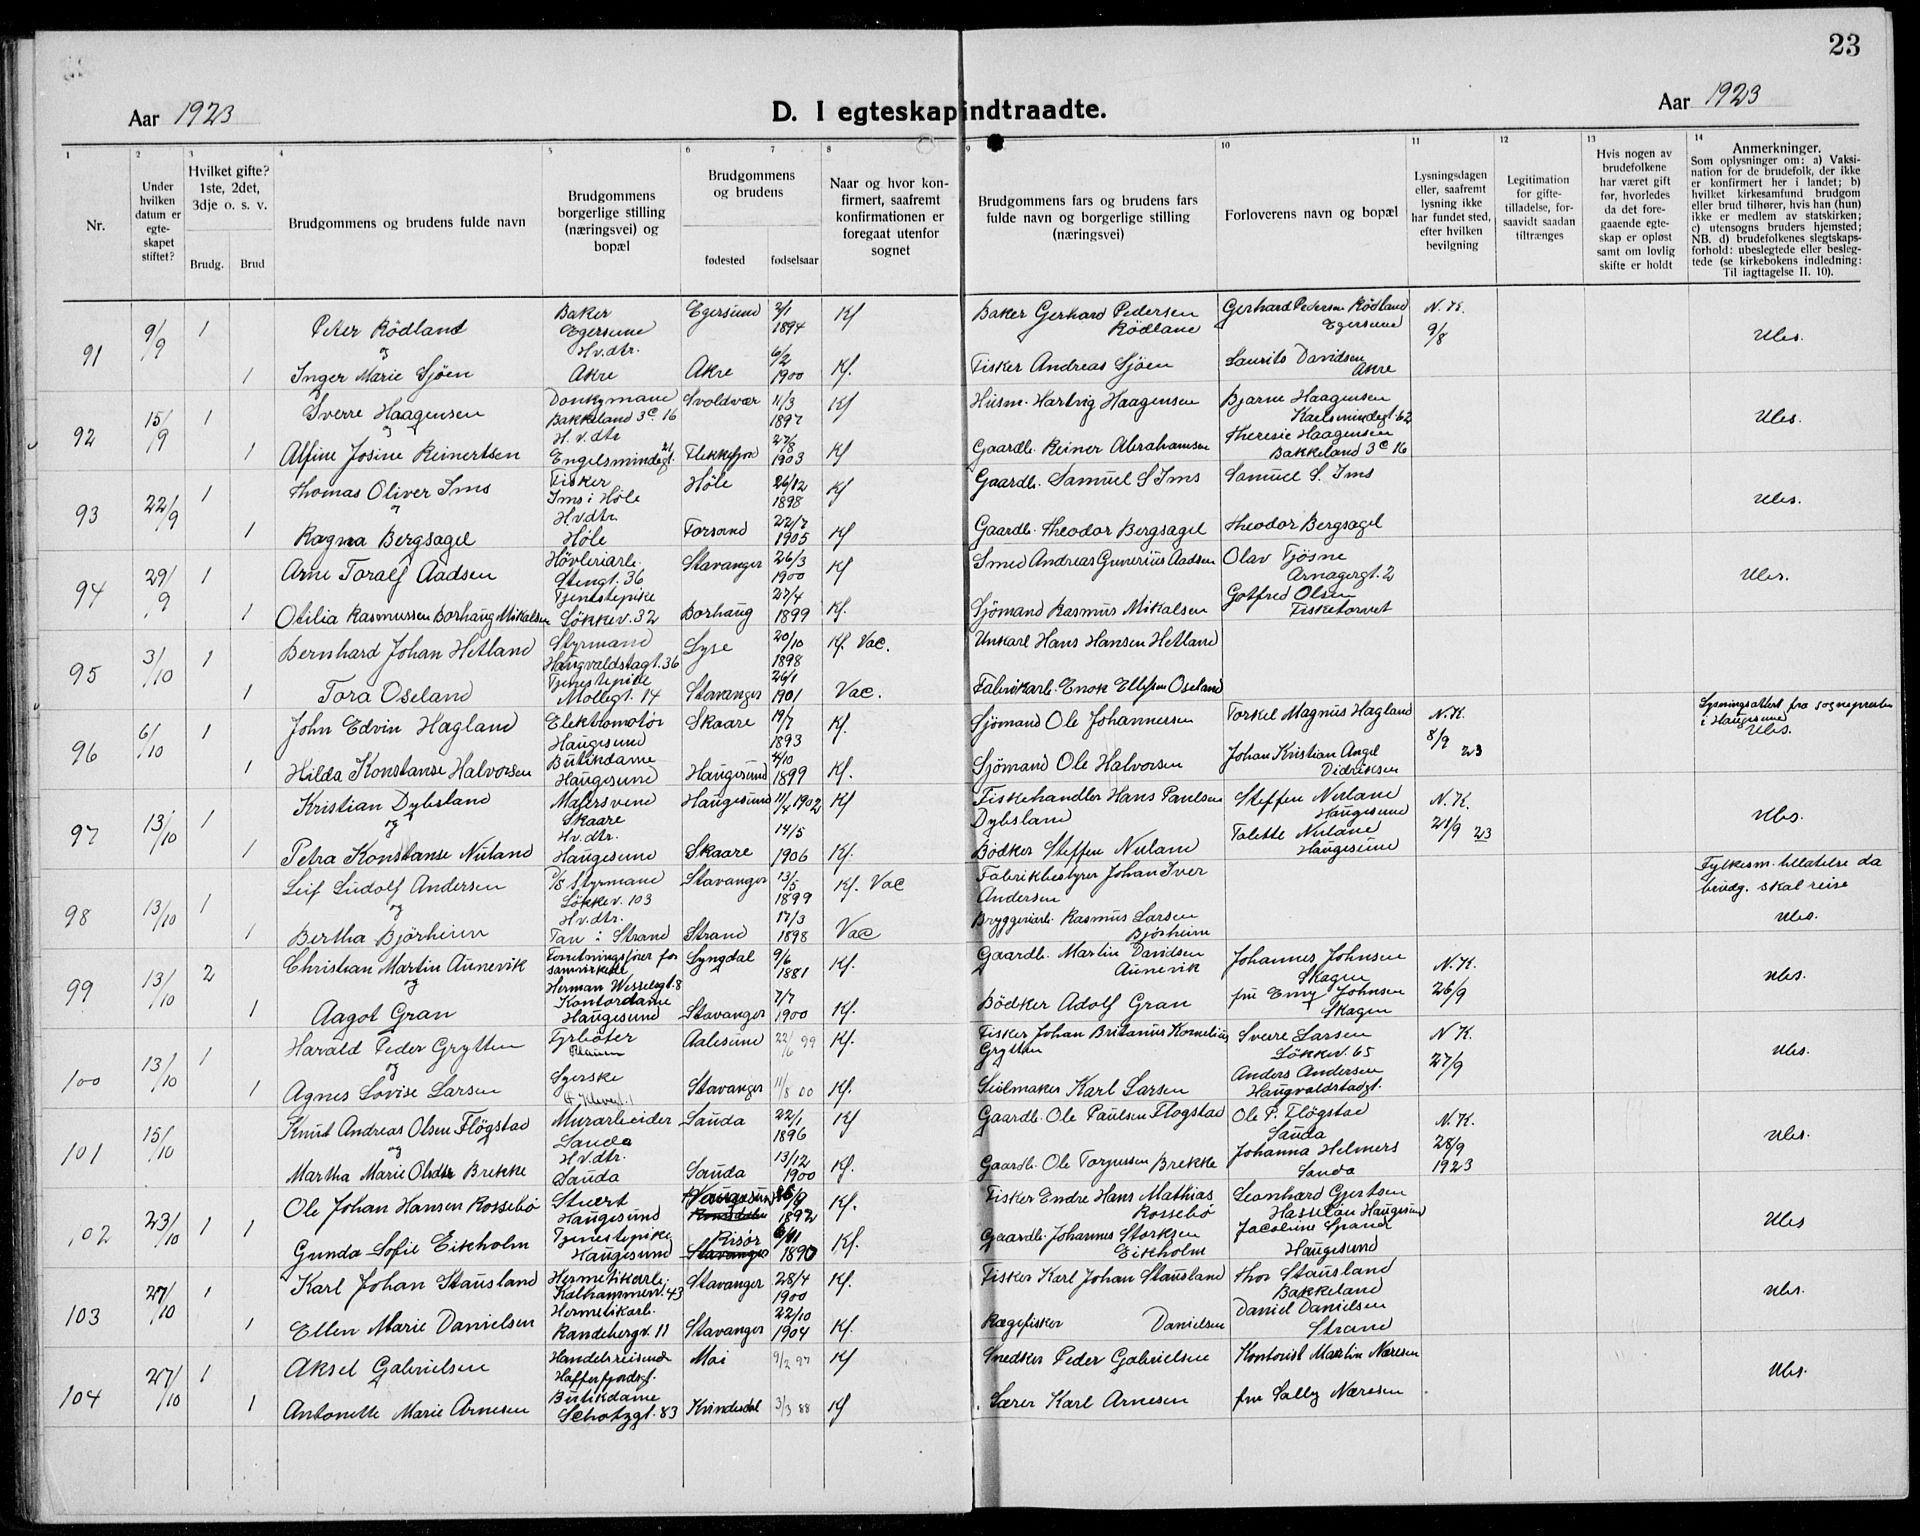 23
Aar 1923
D. I egteskap indtraadte.
Aar 1923
1 2 3 4 5 6 7 8 9 10 11 12 13 14
Nr.
Under hvilken datum er egteskapet stiftet?
Hvilket gifte? 1ste, 2det, 3dje o. s. v.
Brudg. Brud
Brudgommens og brudens fulde navn
Brudgommens borgerlige stilling (næringsvei) og bopæl
Brudgommens og brudens
fødested fødselsaar
Naar og hvor konfirmert, saafremt konfirmationen er foregaat utenfor sognet
Brudgommens fars og brudens fars fulde navn og borgerlige stilling (næringsvei)
Forloverens navn og bopæl
Lysningsdagen eller, saafremt lysning ikke har fundet sted, efter hvilken bevilgning
Legitimation for giftetilladelse, forsaavidt saadan tiltrænges
Hvis nogen av brudefolkene har været gift før, hvorledes da det foregaaende egteskap er opløst samt om lovlig skifte er holdt
Anmerkninger.
Som oplysninger om: a) Vaksination for de brudefolk, der ikke er konfirmert her i landet; b) hvilket kirkesamfund brudgom eller brud tilhører, hvis han (hun) ikke er medlem av statskirken; c) utensogns bruders hjemsted; NB. d) brudefolkenes slegtskapsforhold: ubeslegtede eller beslegtede (se kirkebokens indledning: Til iagttagelse II. 10).
91 9/9 1 Peter Rödland Baker Egersund Egersund 2/1 1894 Kf Baker Gerhard Pedersen Rödland Gerhard Pedersen Rödland Egersund N. K. 9/8 Ubs.
og
1 Inger Marie Sjöen Hv. dtr. Akre Akre 6/2 1900 Kf. Fisker Andreas Sjöen Laurits Davidsen Akre
92 15/9 1 Sverre Haagensen Donkymand Bakkeland 3c 16 Svoldvær 11/3 1897 Kf Husm. Hartvig Haagensen Bjarne Haagensen Kaelsmindegt. 62 Ubs.
1 Alfine Josine Reinertsen H. v. dtr Engelsmindegt. 21 Flekkefjord 27/8 1903 Kf Gaardb. Reiner Abrahamsen Theresie Haagensen Bakkeland 3c 16
93 22/9 1 Thomas Oliver Ims Fisker Ims i Höle Höle 26/12 1898 Kf Gaardb. Samuel S Ims Samuel S. Ims Ubs.
1 Ragna Bergsagel Hv dtr. Höle Forsand 22/7 1905 Kf Gaardb. Theodor Bergsagel Theodor Bergsagel
94 29/9 1 Arne Toralf Aadsen Hövleriarb. Stengt. 36 Stavanger 26/3 1900 Kf Smed Andreas Gunerius Aadsen Olav Tjösne Arnagergt. 2 Ubs.
1 Otilia Rasmussen Borhaug Mikalsen Tjenestepike Løkkev. 32 Borhaug 27/4 1899 Kf. Sjömand Rasmus Mikalsen Gotfred Olsen Fisketorvet
95 3/10 1 Bernhard Johan Hetland Styrmand Haugvaldstagt. 36 Lyse 20/10 1898 Kf. Vac. Unkarl Hans Hansen Hetland
1 Tora Oseland Tjenestepike Möllegt. 14 Stavanger 26/1 1901 Vac. Fabrikarb. Enok Ellefsen Oseland
96 6/10 1 John Edvin Hagland Elektromotör Haugesund Skaare 19/7 1893 Kf. Sjömand Ole Johannesen Torkel Magnus Hagland N. K. 8/9 23 Lysningsattest fra sognepresten i Haugesund Ubs.
1 Hilda Konstanse Halvorsen Butikdame Haugesund Haugesund 4/10 1899 Kf. Sjömand Ole Halvorsen Johan Kristian Angel Didriksen
97 13/10 1 Kristian Dybsland Malersvend Skaare Haugesund 11/4 1902 Kf Fiskehandler Hans Paulsen Dybsland Steffen Nuland Haugesund N. K. 21/9 23 Ubs.
og
1 Petra Konstanse Nuland Hv. dtr. Haugesund Skaare 14/5 1906 Kf. Bödker Steffen Nuland Talette Nuland Haugesund
98 13/10 1 Leif Ludolf Andersen D/S Styrmand Løkkev. 103 Stavanger 13/5 1899 Kf. Vac Fabrikbestyrer Johan Iver Andersen Fylkesm. tillatelse da brudg. skal reise
og
1 Bertha Bjørheim H. v. dtr. Tau i Strand Strand 17/3 1898 Vac Bryggeriarb. Rasmus Larsen Bjørheim Ubs.
99 13/10 2 Christian Martin Aunevik Forretningsfører for samvirkelag Herman Wesselsgt. 8 Lyngdal 9/6 1881 Kf. Gaardb. Martin Davidsen Aunevik Johannes Johnsen Skagen N. K. 26/9 Ubs.
og
1 Aagot Gran Kontordame Haugesund Stavanger 7/7 1900 Kf. Bödker Adolf Gran fru Emy Johnsen Skagen
100 13/10 1 Harald Peder Grytten Fyrböter Aalesund 22/6 99 Kf. Fisker Johan Britanus Kornelius Grytten Sverre Larsen Løkkev. 65 N K. 27/9 Ubs.
og
1 Agnes Lovise Larsen Syerske Stavanger 11/8 00 Kf. Seilmaker Karl Larsen Anders Andersen Haugvaldstadgt.
101 15/10 Knut Andreas Olsen Flögstad Murarbeider Sauda Sauda 22/1 1896 Kf Gaardb. Ole Paulsen Flogstad Ole P. Flögstad Sauda N. K. 28/9 1923 Ubs.
og
Martha Marie Olsdtr Brekke H. v. dtr. Sauda Sauda 13/12 1900 Kf. Gaardb. Ole Torgersen Brekke Johanna Helmers Sauda
102 23/10 1 1 Ole Johan Hansen Rossebö Stuert Haugesund Haugesund 1892 Kf. Fisker Endre Hans Mathias Rossebö Leonhard Gjertsen Hasseløn Haugesund Ubs
Gunda Sofie Eikholm Tjenestepike Haugesund Risör Stavanger 6/11 1890 Kf. Gaardb. Johannes Storksen Eikholm Jacobine Grand Haugesund
103 27/10 1 Karl Johan Stausland Hermetikarb. Kalhammerv. 43 Stavanger 28/4 1900 Kf. Fisker Karl Johan Stausland Thor Stausland Bakkeland Ubs.
1 Ellen Marie Danielsen Hermetikarb. Randebergv. 11 Stavanger 22/10 1904 Kf. Rægefisker Danielsen Daniel Danielsen Strand
104 27/10 1 Aksel Gabrielsen Handelsreisende Hafferfjordsgt. Moi 9/2 97 Kf Snedker Peder Gabrielsen Kontorist Martin Næresen Ubs.
1 Antonette Marie Arnesen Butikdame Schotzgt. 83 Kvinesdal 3/3 88 Kf Lærer Karl Arnesen fru Sally Næresen